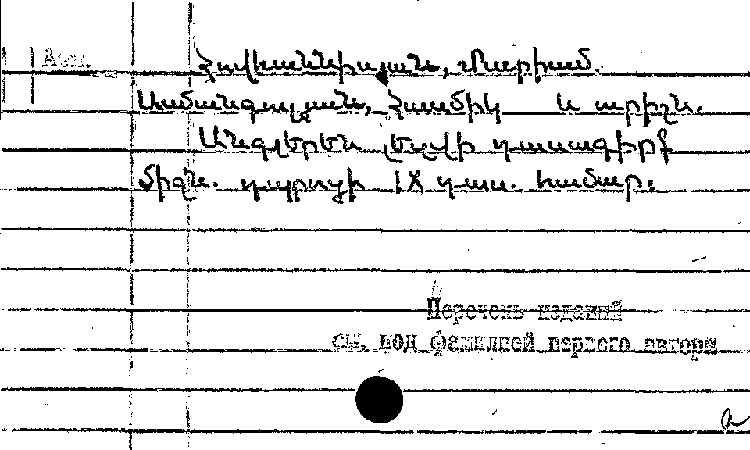 Հովհաննիսյան, Մարիամ.
Ասմանգուլյան, Հասմիկ և ուրիշն.
Անգլերեն լեզվի դասագիրք
միջն. դպրոցի IX դաս. համար.
Перечень изданий
см. под фамилией первого автора